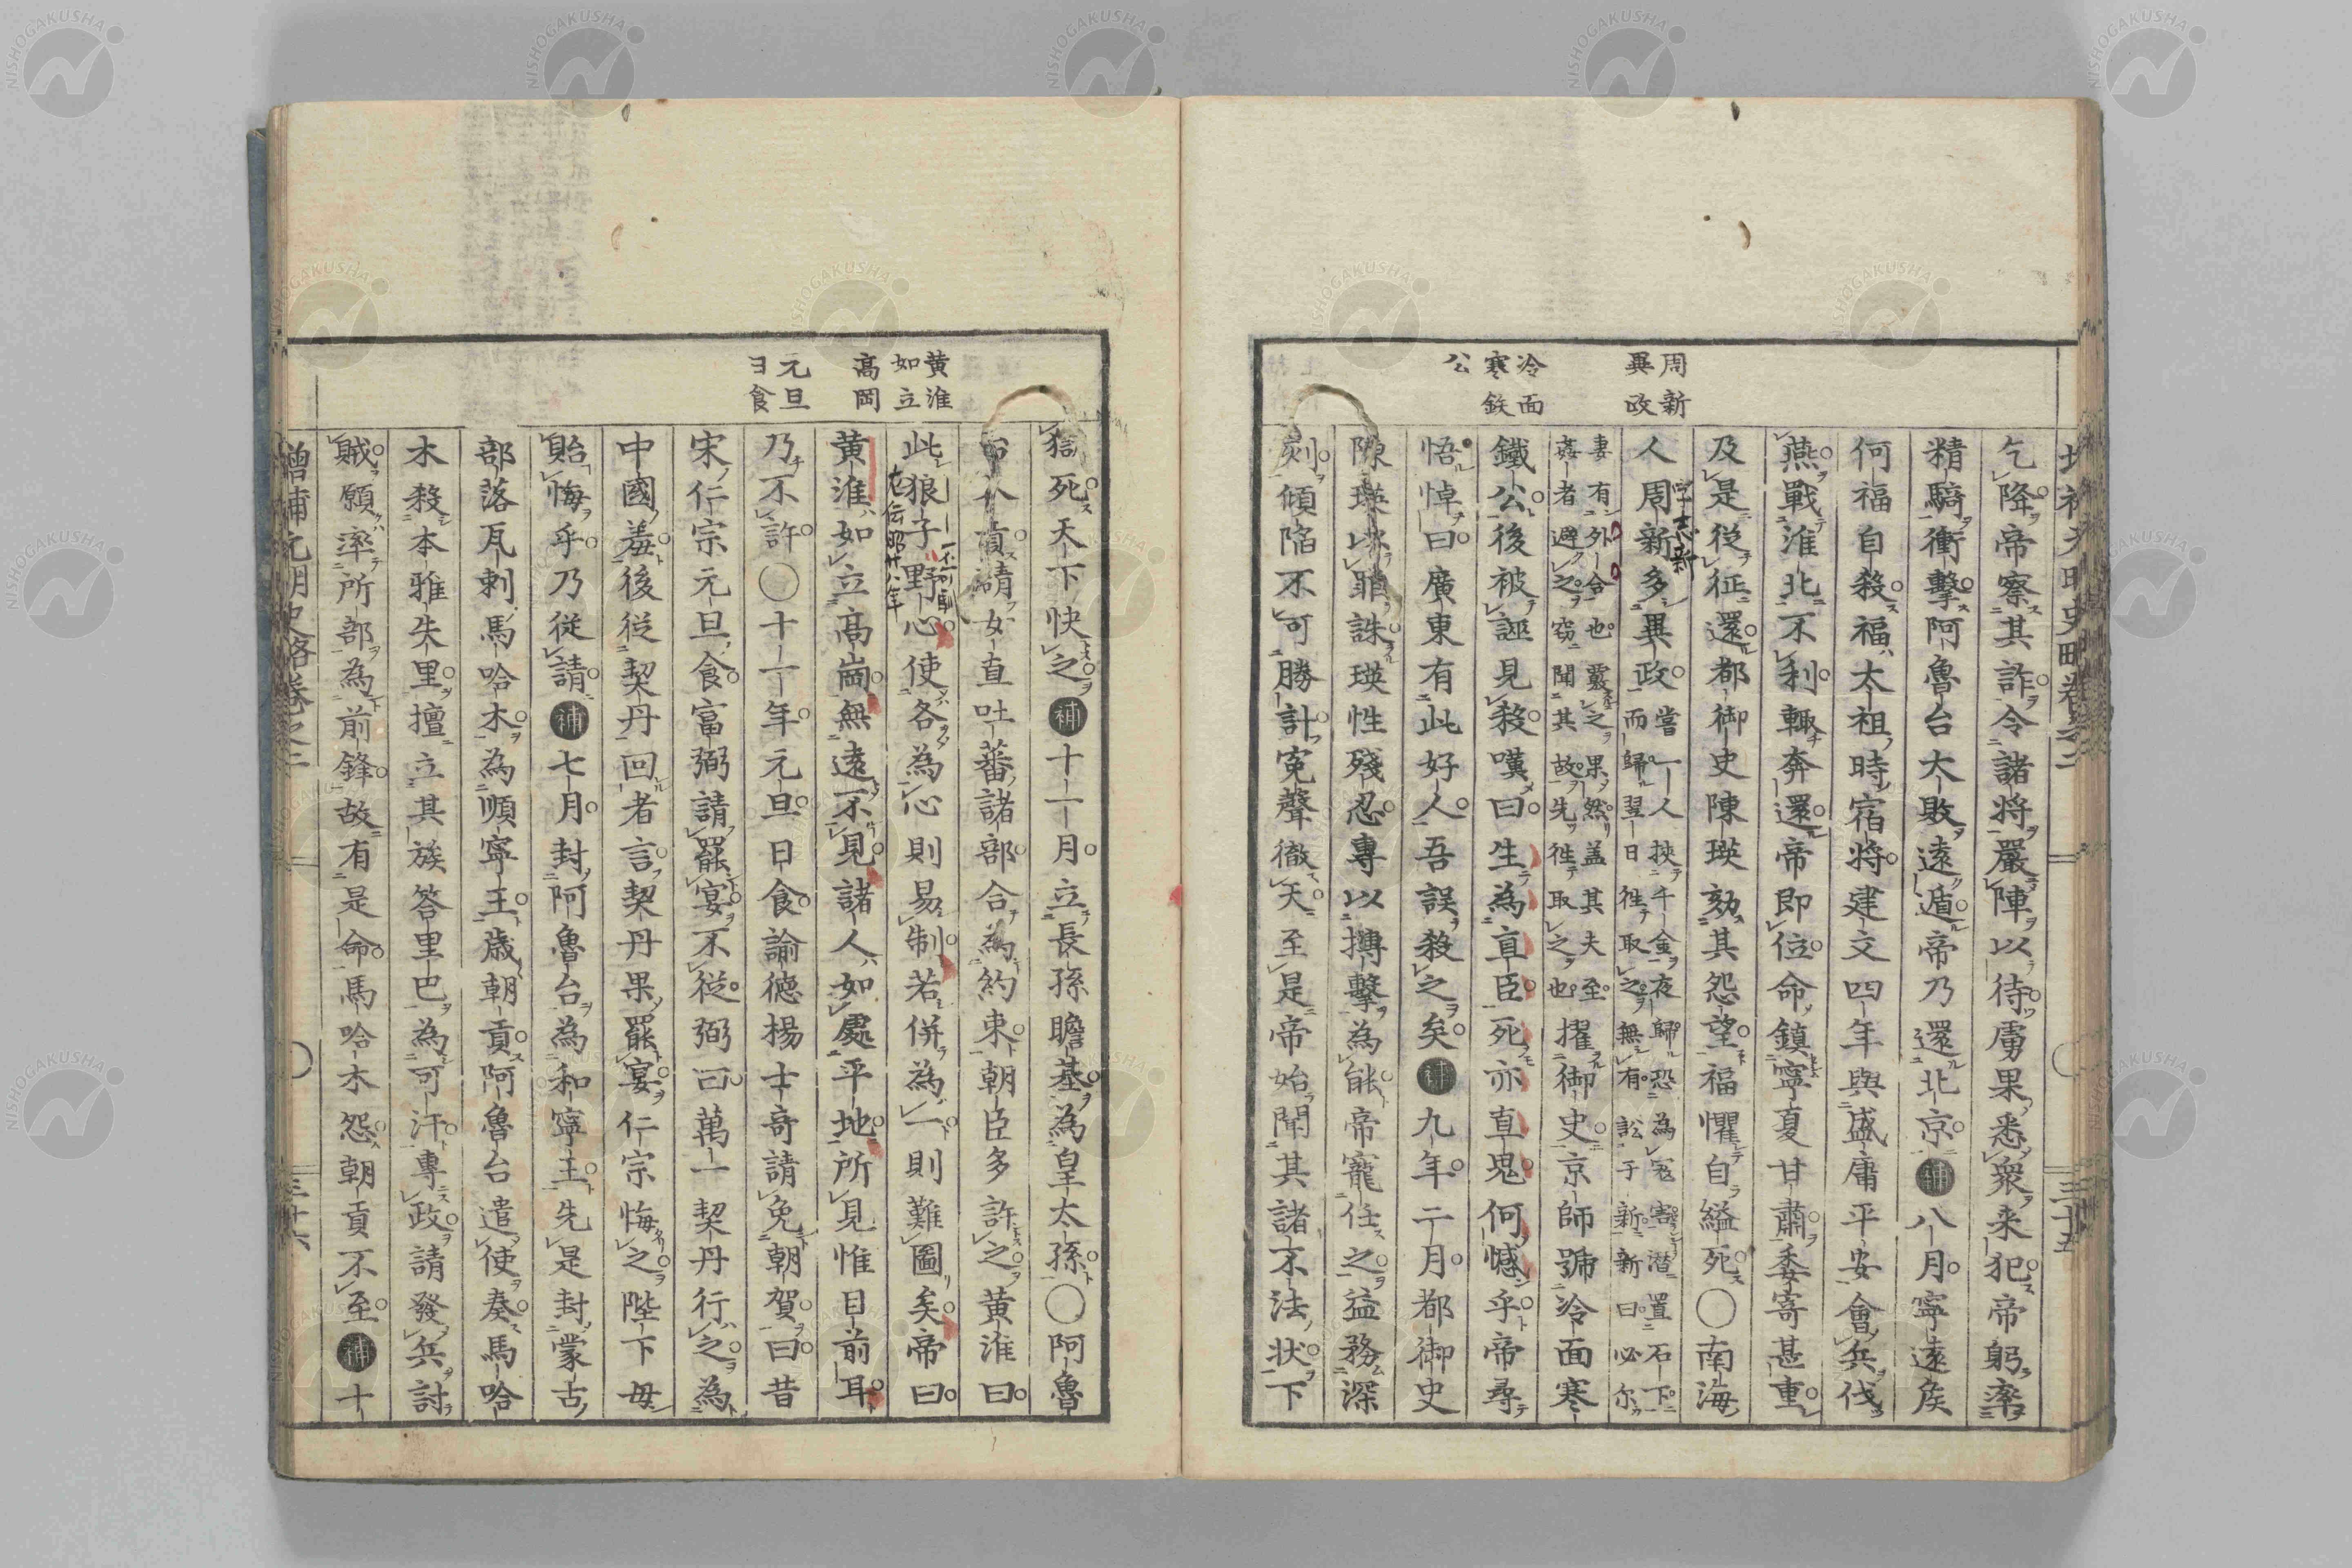 乞降帝察其詐令諸將嚴陣以待虜果悉衆来犯帝躬率
精騎衝擊阿魯台大敗遠遁帝乃還北京補八月寧遠侯
何福自殺福太祖時宿將建文四年與盛庸平安會兵伐
燕戰淮北不利輙奔還帝即位命鎮寧夏甘肅委寄甚重
及是從征還都御史陳瑛劾其怨望福懼自縊死〇南海
人周新多異政嘗一人挾千金夜歸恐為寇害潜置石下
而歸翌日徃取之無有訟于新新曰必尔
妻有外合也覈之果然盖其夫至
姦者適之窃聞其故先徃取之也擢御史京師號冷面寒
鐵公後被誣見殺嘆曰生為直臣死亦直鬼何憾乎帝尋
悟悼曰廣東有此好人吾誤殺之矣補九年二月都御史
陳瑛以罪誅瑛性殘忍專以搏擊為能帝寵任之益務深
刻傾陥不可勝計寃聲徹天至是帝始聞其諸不法状下
周新
異政
冷面
寒鉄
公
三十五
獄死天下快之補十一月立長孫瞻基為皇太孫〇阿魯
貢請女直吐蕃諸部合為約束朝臣多許之黄淮曰
此狼子野心使各為心則易制若併為一則難圖矣帝曰
黄淮如立高崗無遠不見諸人如處平地所見惟目前耳
乃不許〇十一年元旦日食諭徳楊士奇請免朝賀曰昔
宋仁宗元旦食富弼請罷宴不従弼曰萬一契丹行之為
中國羞後従契丹回者言契丹果罷宴仁宗悔之陛下毋
貽悔乎乃従請補七月封阿魯台為和寧王先是封蒙古
部落瓦剌馬哈木為順寧王歳朝貢阿魯台遣使奏馬哈
木殺本雅失里擅立其族答里巴為可汗專政請發兵討
賊願率所部為前鋒故有是命馬哈木怨朝貢不至補十
黄淮
如立
高岡
元旦
日食
増補元明史略巻之二
三十六